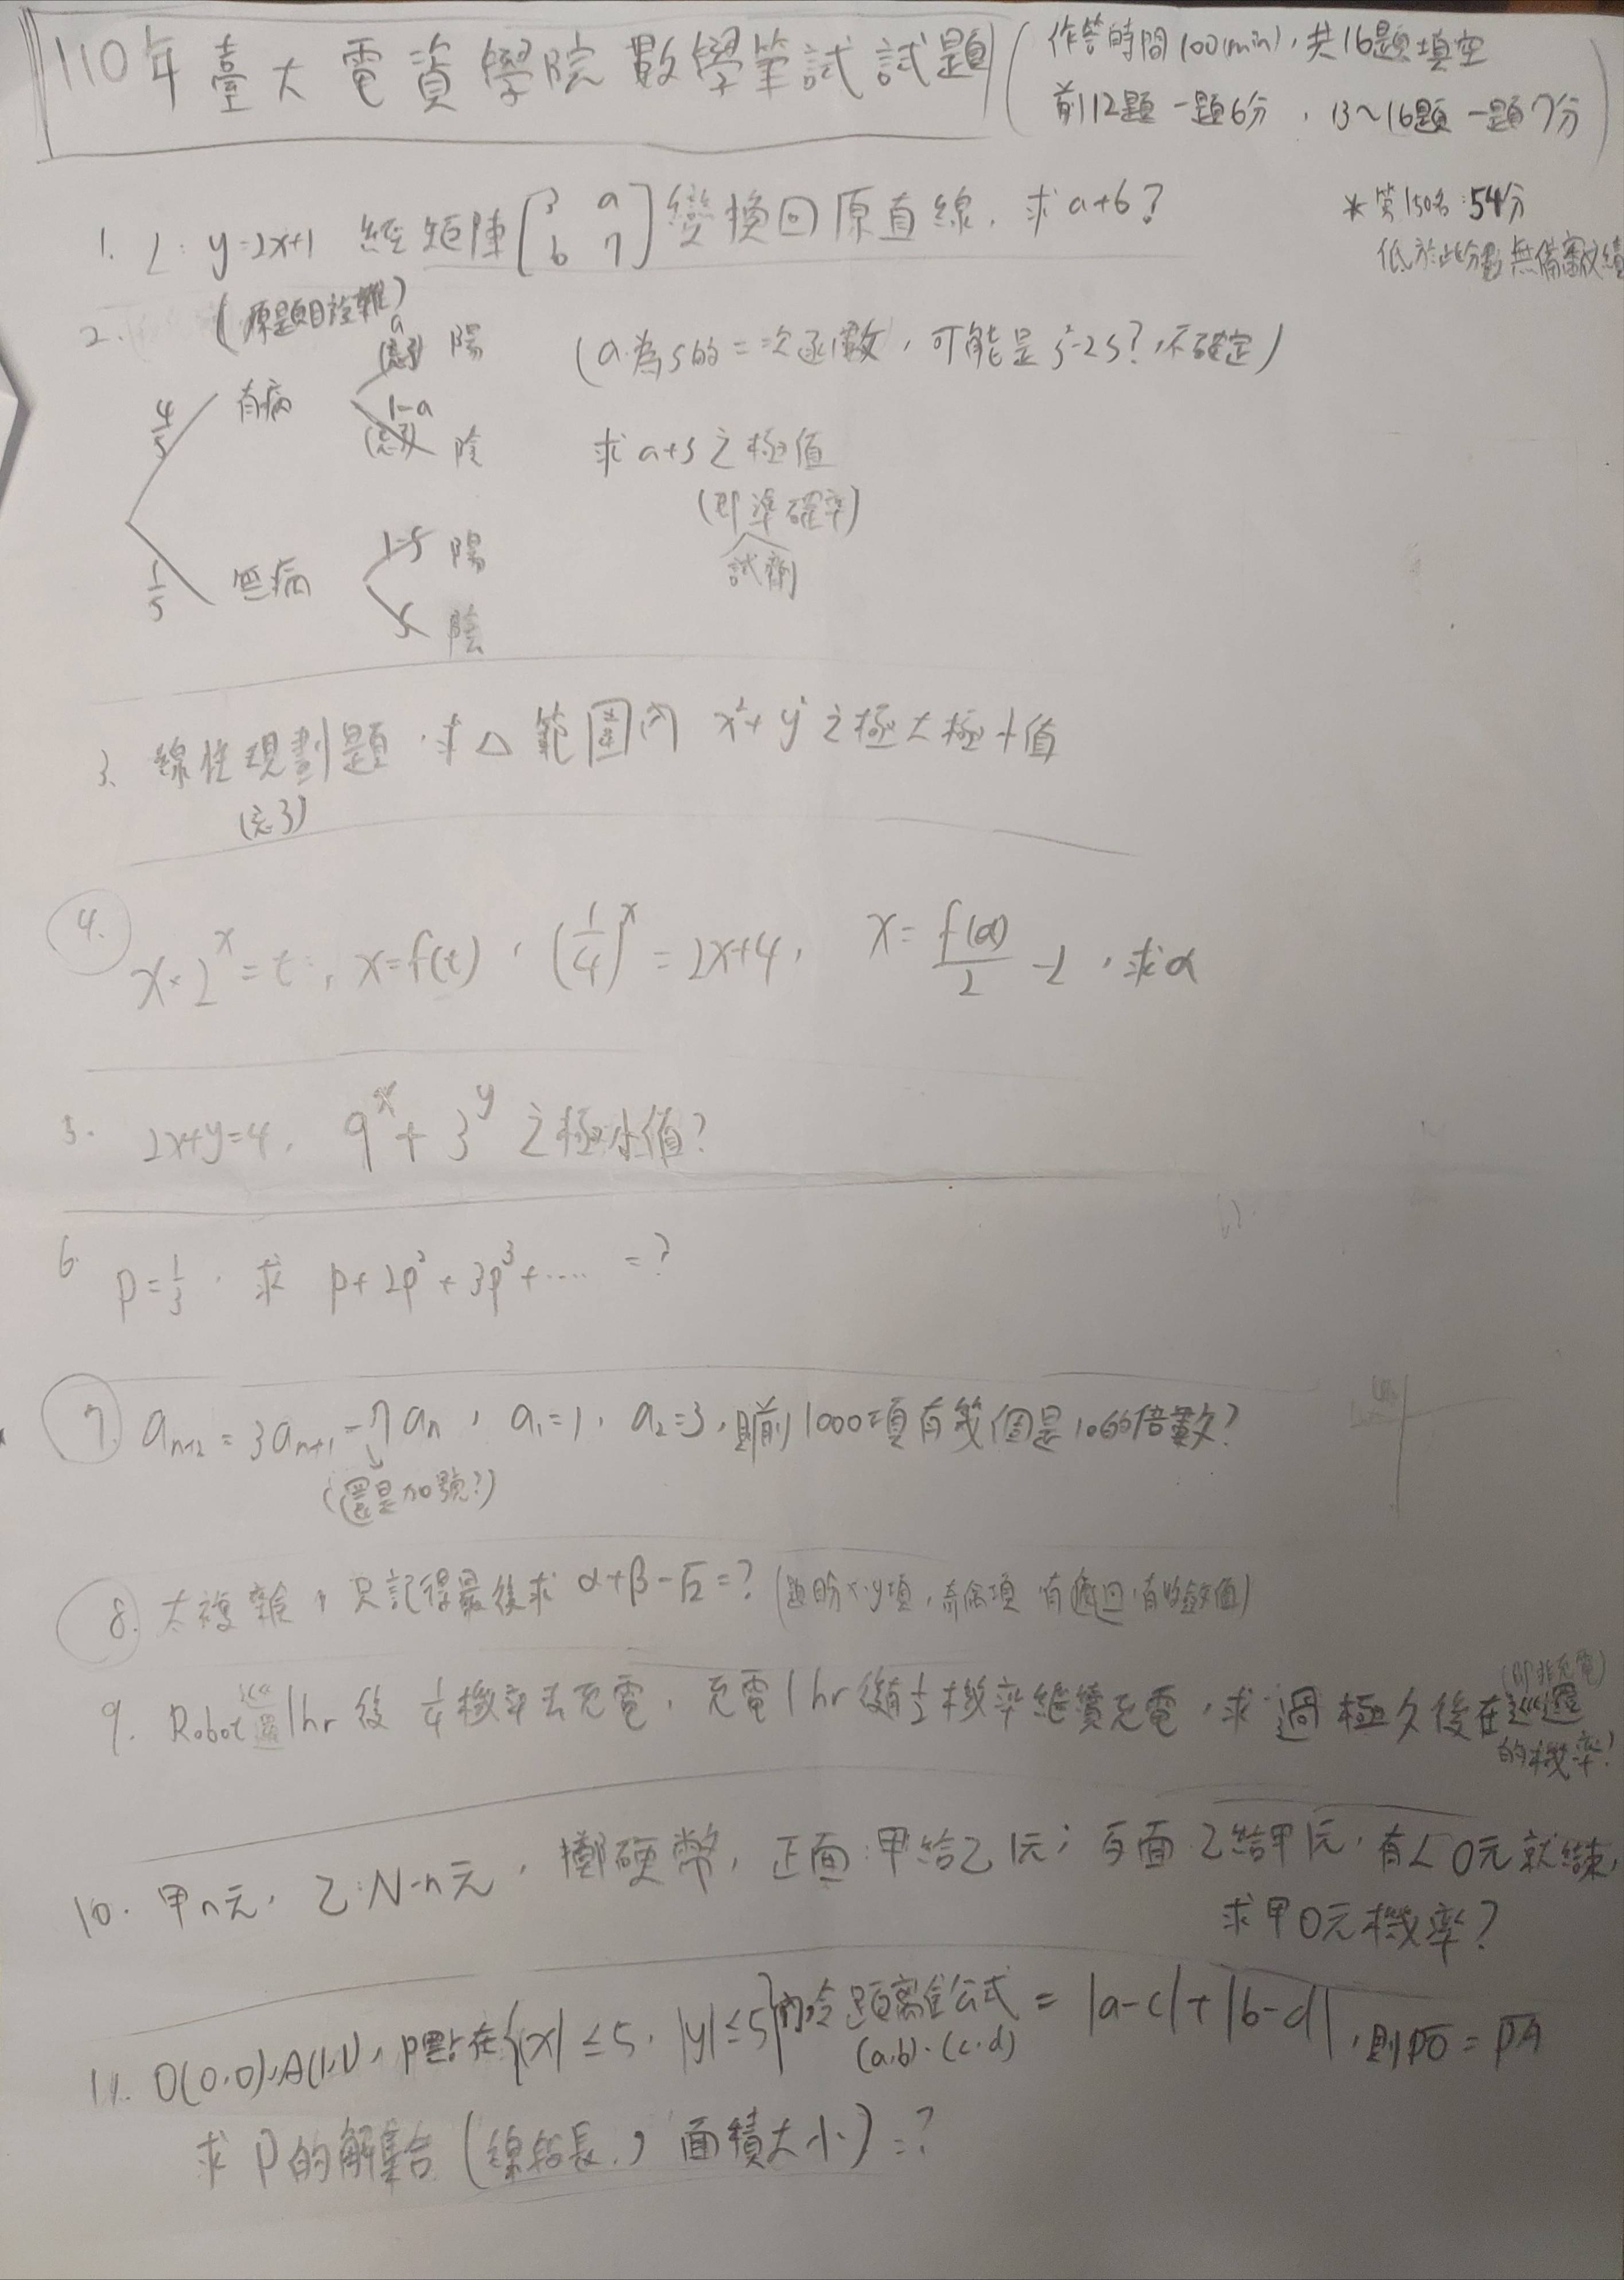 110年臺大電資學院數學筆試試題
(作答時間100(min),共16題填空
前12題一題6分,13~16題一題7分)
*第150名:54分
低於此分數無備審成績
1. L: y=2x+1 經矩陣[3 a b 7]變換回原直線,求a+b?
2. (原題目複雜)
4/5 有病 a (忘了) 陽
1-a (忘了) 陰
1/5 無病 1-s 陽
s 陰
(a為s的二次函數,可能是s²-2s?,不確定)
求a+s之極值
(即準確率)
試劑
3. 線性規劃題,求△範圍內 x²+y²之極大極小值
(忘了)
4. x·2^x=t, x=f(t), (1/4)^x=2x+4, x=f(α)/2-2,求α
5. 2x+y=4, 9^x+3^y之極小值?
6. p=1/3,求 p+2p²+3p³+..... =?
7. a_{n+2}=3a_{n+1}-7a_n, a_1=1, a_2=3,則前1000項有幾個是10的倍數?
(還是加號?)
8. 太複雜,只記得最後求 α+β-√2=? (題目分x,y項,奇偶項,有遞迴,有收斂值)
9. Robot巡邏1hr後 1/4機率去充電,充電1hr後有1/2機率繼續充電,求過極久後在巡邏(即非充電)的機率?
10. 甲n元,乙:N-n元,擲硬幣,正面:甲給乙1元;反面:乙給甲1元,有人0元就結束,
求甲0元機率?
11. O(0,0),A(1,1),P點在{|x|≤5,|y|≤5}內,令距離公式=|a-c|+|b-d|,則PO=PA
(a,b)·(c,d)
求P的解集合(線段長,面積大小)=?